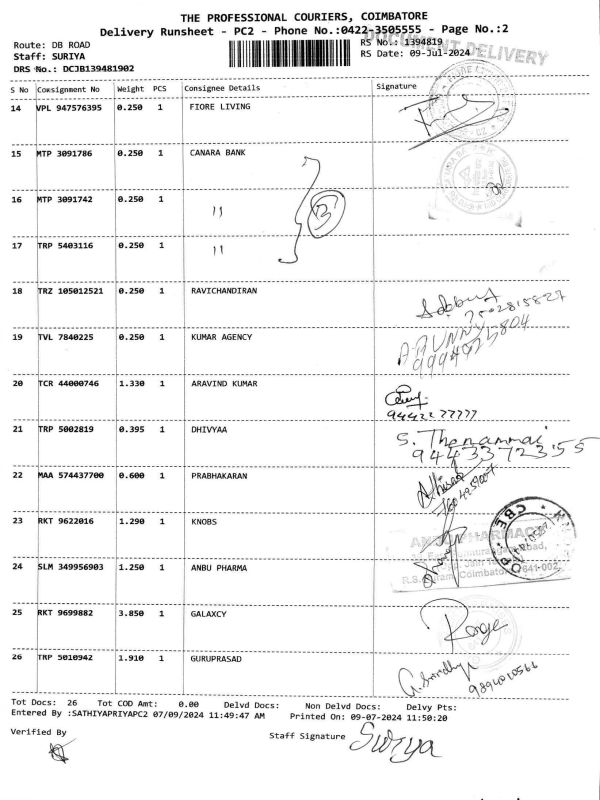 THE PROFESSIONAL COURIERS, COIMBATORE
Delivery Runsheet - PC2 - Phone No.:0422-3505555 - Page No.:2
Route: DB ROAD RS No.: 1394819
Staff: SURIYA RS Date: 09-Jul-2024
DOCUMENT DELIVERY
DRS No.: DCJB139481902
S No Consignment No Weight PCS Consignee Details Signature
14 VPL 947576395 0.250 1 FIORE LIVING
15 MTP 3091786 0.250 1 CANARA BANK
16 MTP 3091742 0.250 1 11 3
17 TRP 5403116 0.250 1 11
18 TRZ 105012521 0.250 1 RAVICHANDIRAN
7502815827
19 TVL 7840225 0.250 1 KUMAR AGENCY
20 TCR 44000746 1.330 1 ARAVIND KUMAR
9442277777
21 TRP 5002819 0.395 1 DHIVYAA S. Thenammai
9443372355
22 MAA 574437700 0.600 1 PRABHAKARAN
23 RKT 9622016 1.290 1 KNOBS
CBE
PHARMACY
24 SLM 349956903 1.250 1 ANBU PHARMA
R.S. Puram, Coimbatore - 641-002
25 RKT 9699882 3.850 1 GALAXCY
26 TRP 5010942 1.910 1 GURUPRASAD
9894010566
Tot Docs: 26 Tot COD Amt: 0.00 Delvd Docs: Non Delvd Docs: Delvy Pts:
Entered By :SATHIYAPRIYAPC2 07/09/2024 11:49:47 AM Printed On: 09-07-2024 11:50:20
Verified By Staff Signature Surya